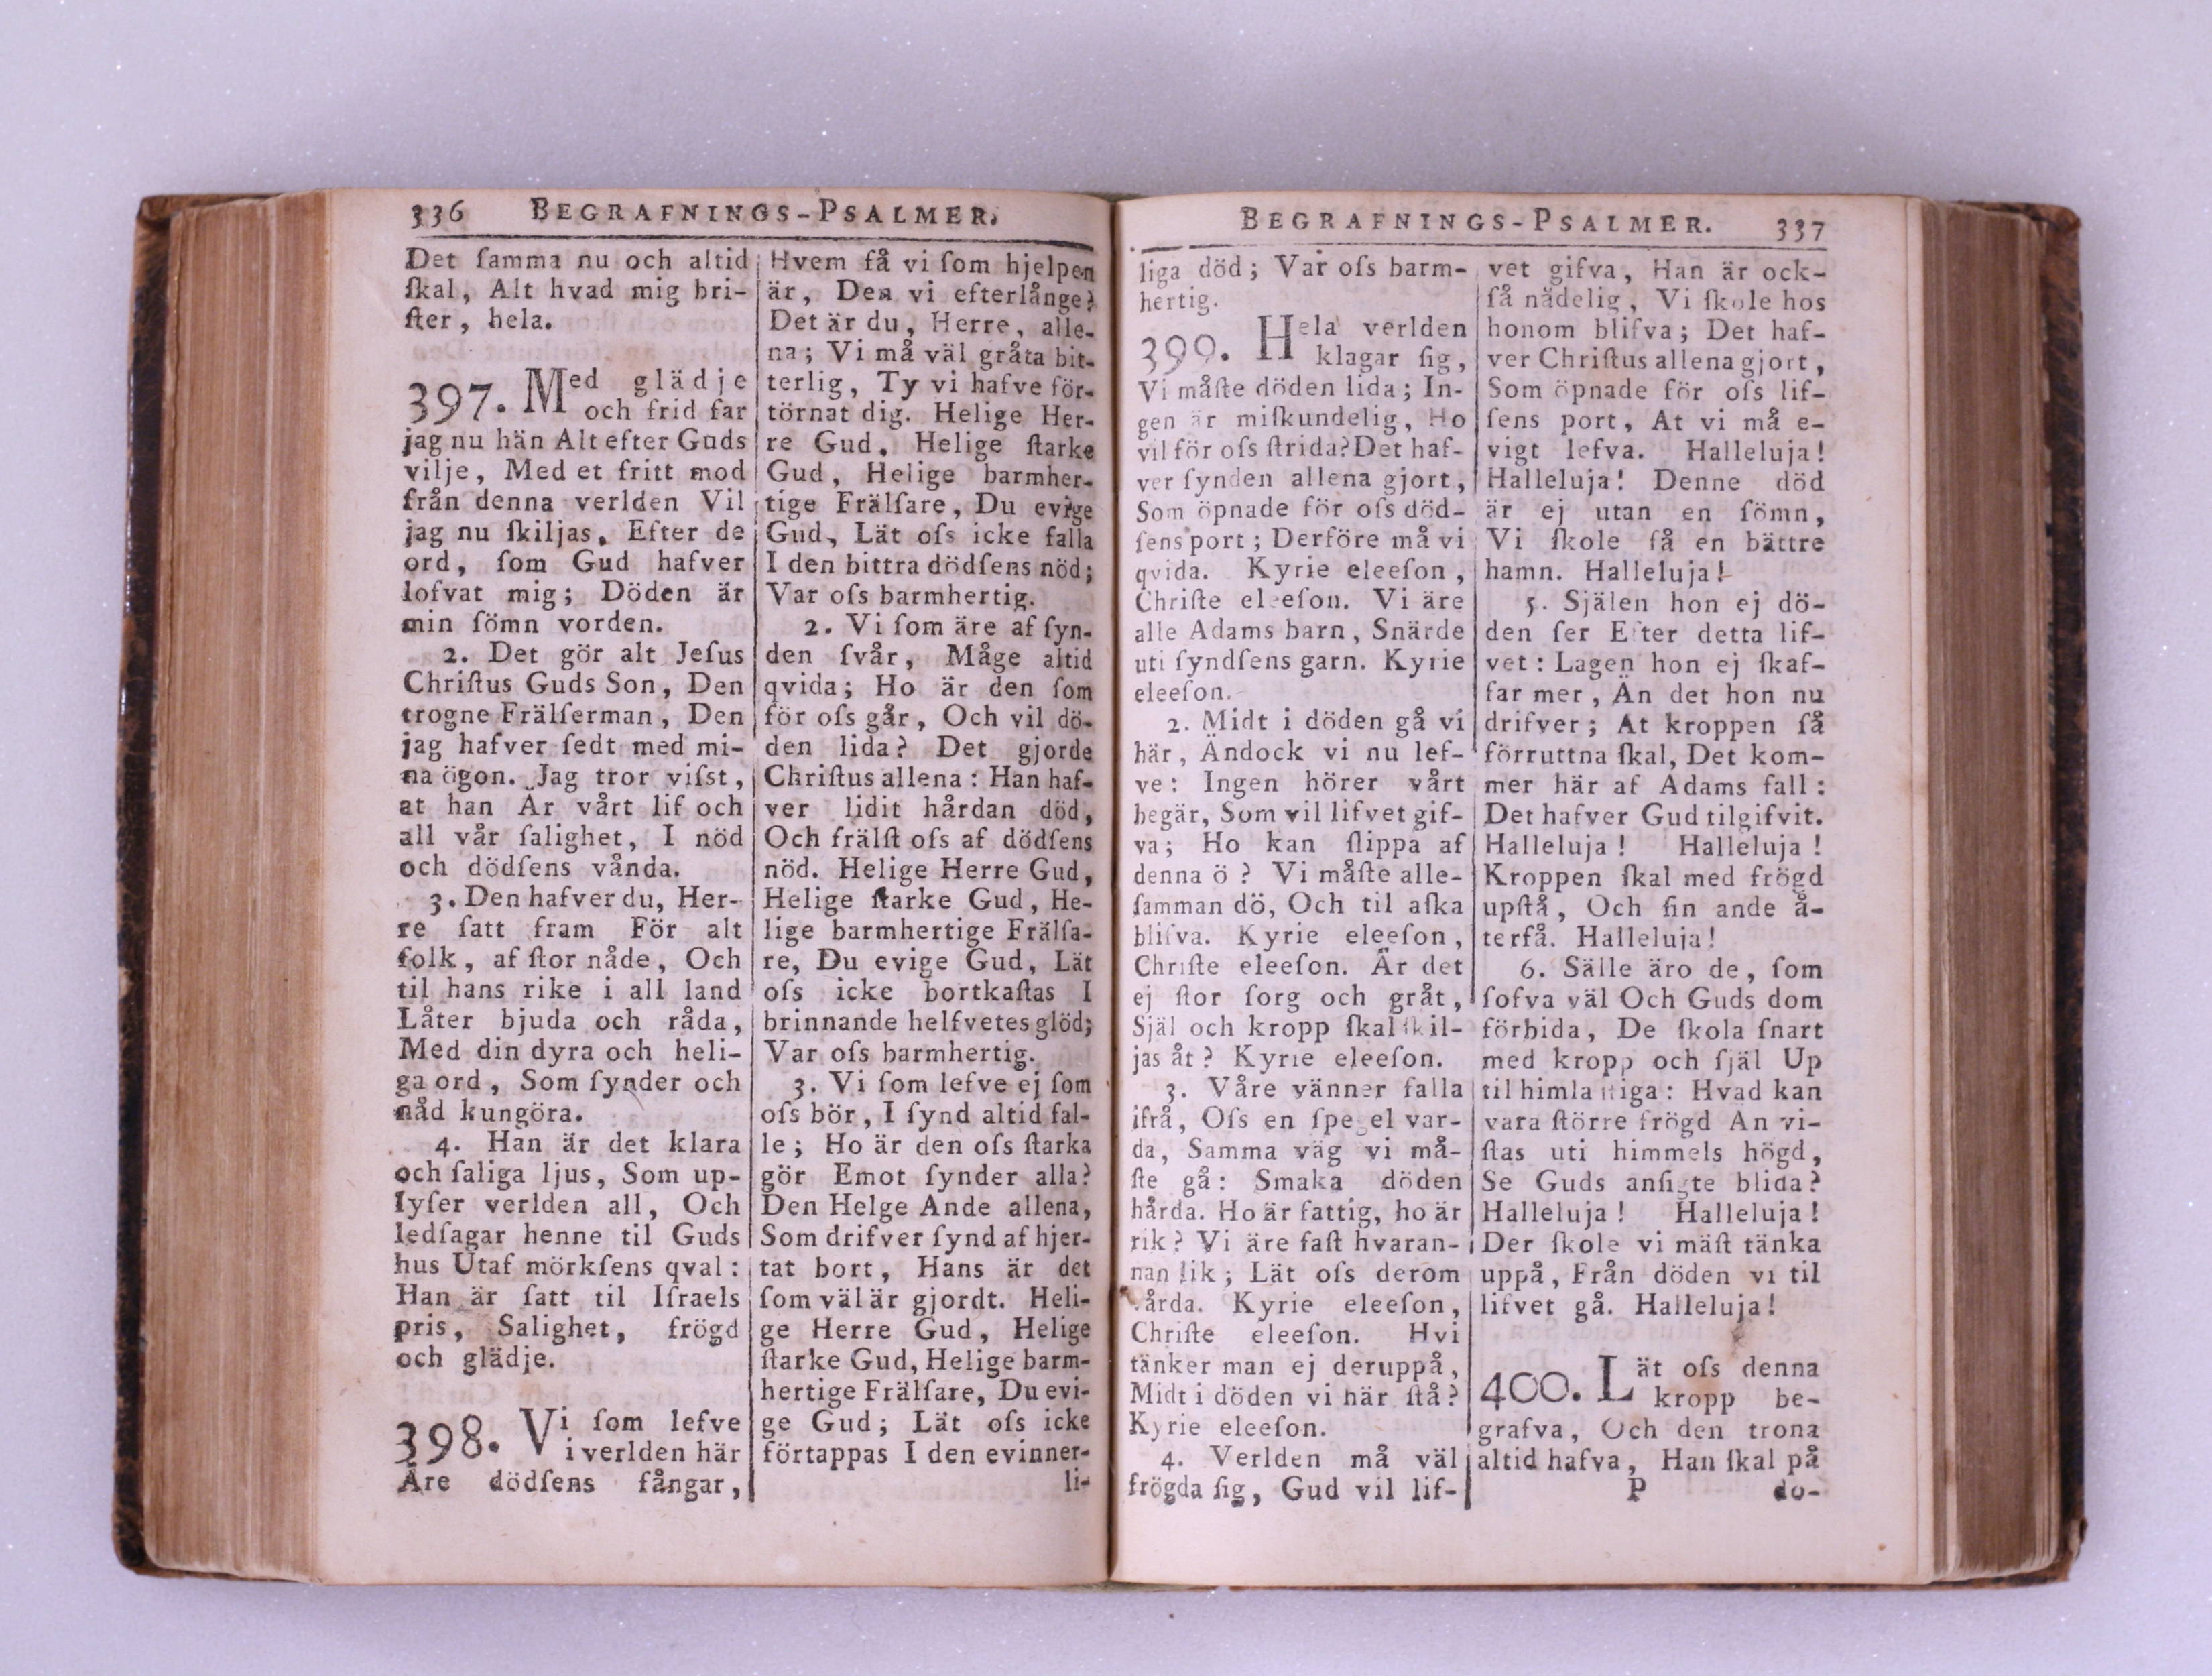 336 BEGRAFNINGS-PSALMER.
Det ſamma nu och altid
ſkal, Alt hvad mig bri-
ſter, hela.
397. Med glädje
och frid far
jag nu hän Alt efter Guds
vilje, Med et fritt mod
från denna verlden Vil
jag nu ſkiljas, Efter de
ord, ſom Gud hafver
lofvat mig; Döden är
min ſömn vorden.
2. Det gör alt Jeſus
Chriſtus Guds Son, Den
trogne Frälſerman, Den
jag hafver ſedt med mi-
na ögon. Jag tror viſst,
at han Är vårt lif och
all vår ſalighet, I nöd
och dödſens vånda.
3. Den hafver du, Her-
re ſatt fram För alt
folk, af ſtor nåde, Och
til hans rike i all land
Låter bjuda och råda,
Med din dyra och heli-
ga ord, Som ſynder och
nåd kungöra.
4. Han är det klara
och ſaliga ljus, Som up-
lyſer verlden all, Och
ledſagar henne til Guds
hus Utaf mörkſens qval:
Han är ſatt til Iſraels
pris, Salighet, frögd
och glädje.
398. Vi ſom lefve
i verlden här
Äre dödſens fångar,
Hvem få vi ſom hjelpen
är, Den vi efterlånge?
Det är du, Herre, alle-
na; Vi må väl gråta bit-
terlig, Ty vi hafve för-
törnat dig. Helige Her-
re Gud, Helige ſtarke
Gud, Helige barmher-
tige Frälſare, Du evige
Gud, Lät oſs icke falla
I den bittra dödſens nöd;
Var oſs barmhertig.
2. Vi ſom äre af ſyn-
den ſvår, Måge altid
qvida; Ho är den ſom
för oſs går, Och vil dö-
den lida? Det gjorde
Chriſtus allena: Han haf-
ver lidit hårdan död,
Och frälſt oſs af dödſens
nöd. Helige Herre Gud,
Helige ſtarke Gud, He-
lige barmhertige Frälſa-
re, Du evige Gud, Lät
oſs icke bortkaſtas I
brinnande helfvetes glöd;
Var oſs barmhertig.
3. Vi ſom lefve ej ſom
oſs bör, I ſynd altid fal-
le; Ho är den oſs ſtarka
gör Emot ſynder alla?
Den Helge Ande allena,
Som drifver ſynd af hjer-
tat bort, Hans är det
ſom väl är gjordt. Heli-
ge Herre Gud, Helige
ſtarke Gud, Helige barm-
hertige Frälſare, Du evi-
ge Gud; Lät oſs icke
förtappas I den evinner-
li-
BEGRAFNINGS-PSALMER. 337
liga död; Var oſs barm-
hertig.
399. Hela verlden
klagar ſig,
Vi måſte döden lida; In-
gen är miſkundelig, Ho
vil för oſs ſtrida? Det haf-
ver ſynden allena gjort,
Som öpnade för oſs död-
ſens port; Derföre må vi
qvida. Kyrie eleeſon,
Chriſte eleeſon. Vi äre
alle Adams barn, Snärde
uti ſyndſens garn. Kyrie
eleeſon.
2. Midt i döden gå vi
här, Ändock vi nu lef-
ve: Ingen hörer vårt
begär, Som vil lifvet gif-
va; Ho kan ſlippa af
denna ö? Vi måſte alle-
ſamman dö, Och til aſka
blifva. Kyrie eleeſon,
Chriſte eleeſon. Är det
ej ſtor ſorg och gråt,
Själ och kropp ſkal ſkil-
jas åt? Kyrie eleeſon.
3. Våre vänner falla
ifrå, Oſs en ſpegel var-
da, Samma väg vi må-
ſte gå: Smaka döden
hårda. Ho är fattig, ho är
rik? Vi äre faſt hvaran-
nan lik; Lät oſs derom
vårda. Kyrie eleeſon,
Chriſte eleeſon. Hvi
tänker man ej deruppå,
Midt i döden vi här ſtå?
Kyrie eleeſon.
4. Verlden må väl
frögda ſig, Gud vil lif-
vet gifva, Han är ock-
ſå nådelig, Vi ſkole hos
honom blifva; Det haf-
ver Chriſtus allena gjort,
Som öpnade för oſs lif-
ſens port, At vi må e-
vigt lefva. Halleluja!
Halleluja! Denne död
är ej utan en ſömn,
Vi ſkole få en bättre
hamn. Halleluja!
5. Själen hon ej dö-
den ſer Efter detta lif-
vet: Lagen hon ej ſkaf-
far mer, Än det hon nu
drifver; At kroppen ſå
förruttna ſkal, Det kom-
mer här af Adams fall:
Det hafver Gud tilgifvit.
Halleluja! Halleluja!
Kroppen ſkal med frögd
upſtå, Och ſin ande å-
terfå. Halleluja!
6. Sälle äro de, ſom
ſofva väl Och Guds dom
förbida, De ſkola ſnart
med kropp och ſjäl Up
til himla ſtiga: Hvad kan
vara ſtörre frögd An vi-
ſtas uti himmels högd,
Se Guds anſigte blida?
Halleluja! Halleluja!
Der ſkole vi mäſt tänka
uppå, Från döden vi til
lifvet gå. Halleluja!
400. Lät oſs denna
kropp be-
grafva, Och den trona
altid hafva, Han ſkal på
P do-